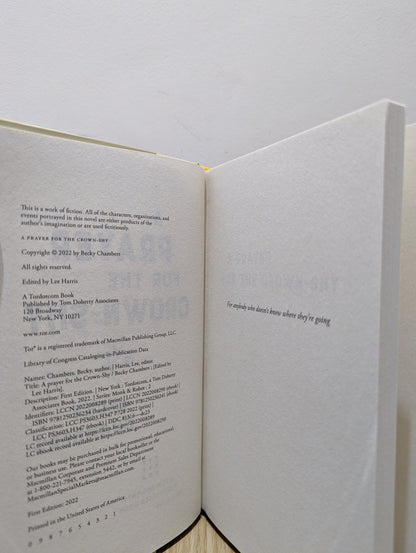 This is a work of fiction. All of the characters, organizations, and
events portrayed in this novel are either products of the
author's imagination or are used fictitiously.
A PRAYER FOR THE CROWN-SHY
Copyright © 2022 by Becky Chambers
All rights reserved.
Edited by Lee Harris
A Tordotcom Book
Published by Tom Doherty Associates
120 Broadway
New York, NY 10271
www.tor.com
Tor® is a registered trademark of Macmillan Publishing Group, LLC.
Library of Congress Cataloging-in-Publication Data
Names: Chambers, Becky, author. | Harris, Lee, editor.
Title: A prayer for the Crown-Shy / Becky Chambers ; [Edited by
Lee Harris].
Description: First Edition. | New York : Tordotcom, a Tom Doherty
Associates Book, 2022. | Series: Monk & Robot ; 2
Identifiers: LCCN 2022008289 (print) | LCCN 2022008290 (ebook) |
ISBN 9781250236234 (hardcover) | ISBN 9781250236241 (ebook)
Classification: LCC PS3603.H347 P728 2022 (print) |
LCC PS3603.H347 (ebook) | DDC 813/.6—dc23
LC record available at https://lccn.loc.gov/2022008289
LC ebook record available at https://lccn.loc.gov/2022008290
Our books may be purchased in bulk for promotional, educational,
or business use. Please contact your local bookseller or the
Macmillan Corporate and Premium Sales Department
at 1-800-221-7945, extension 5442, or by email at
MacmillanSpecialMarkets@macmillan.com.
First Edition: 2022
Printed in the United States of America
0 9 8 7 6 5 4 3 2 1
For anybody who doesn't know where they're going